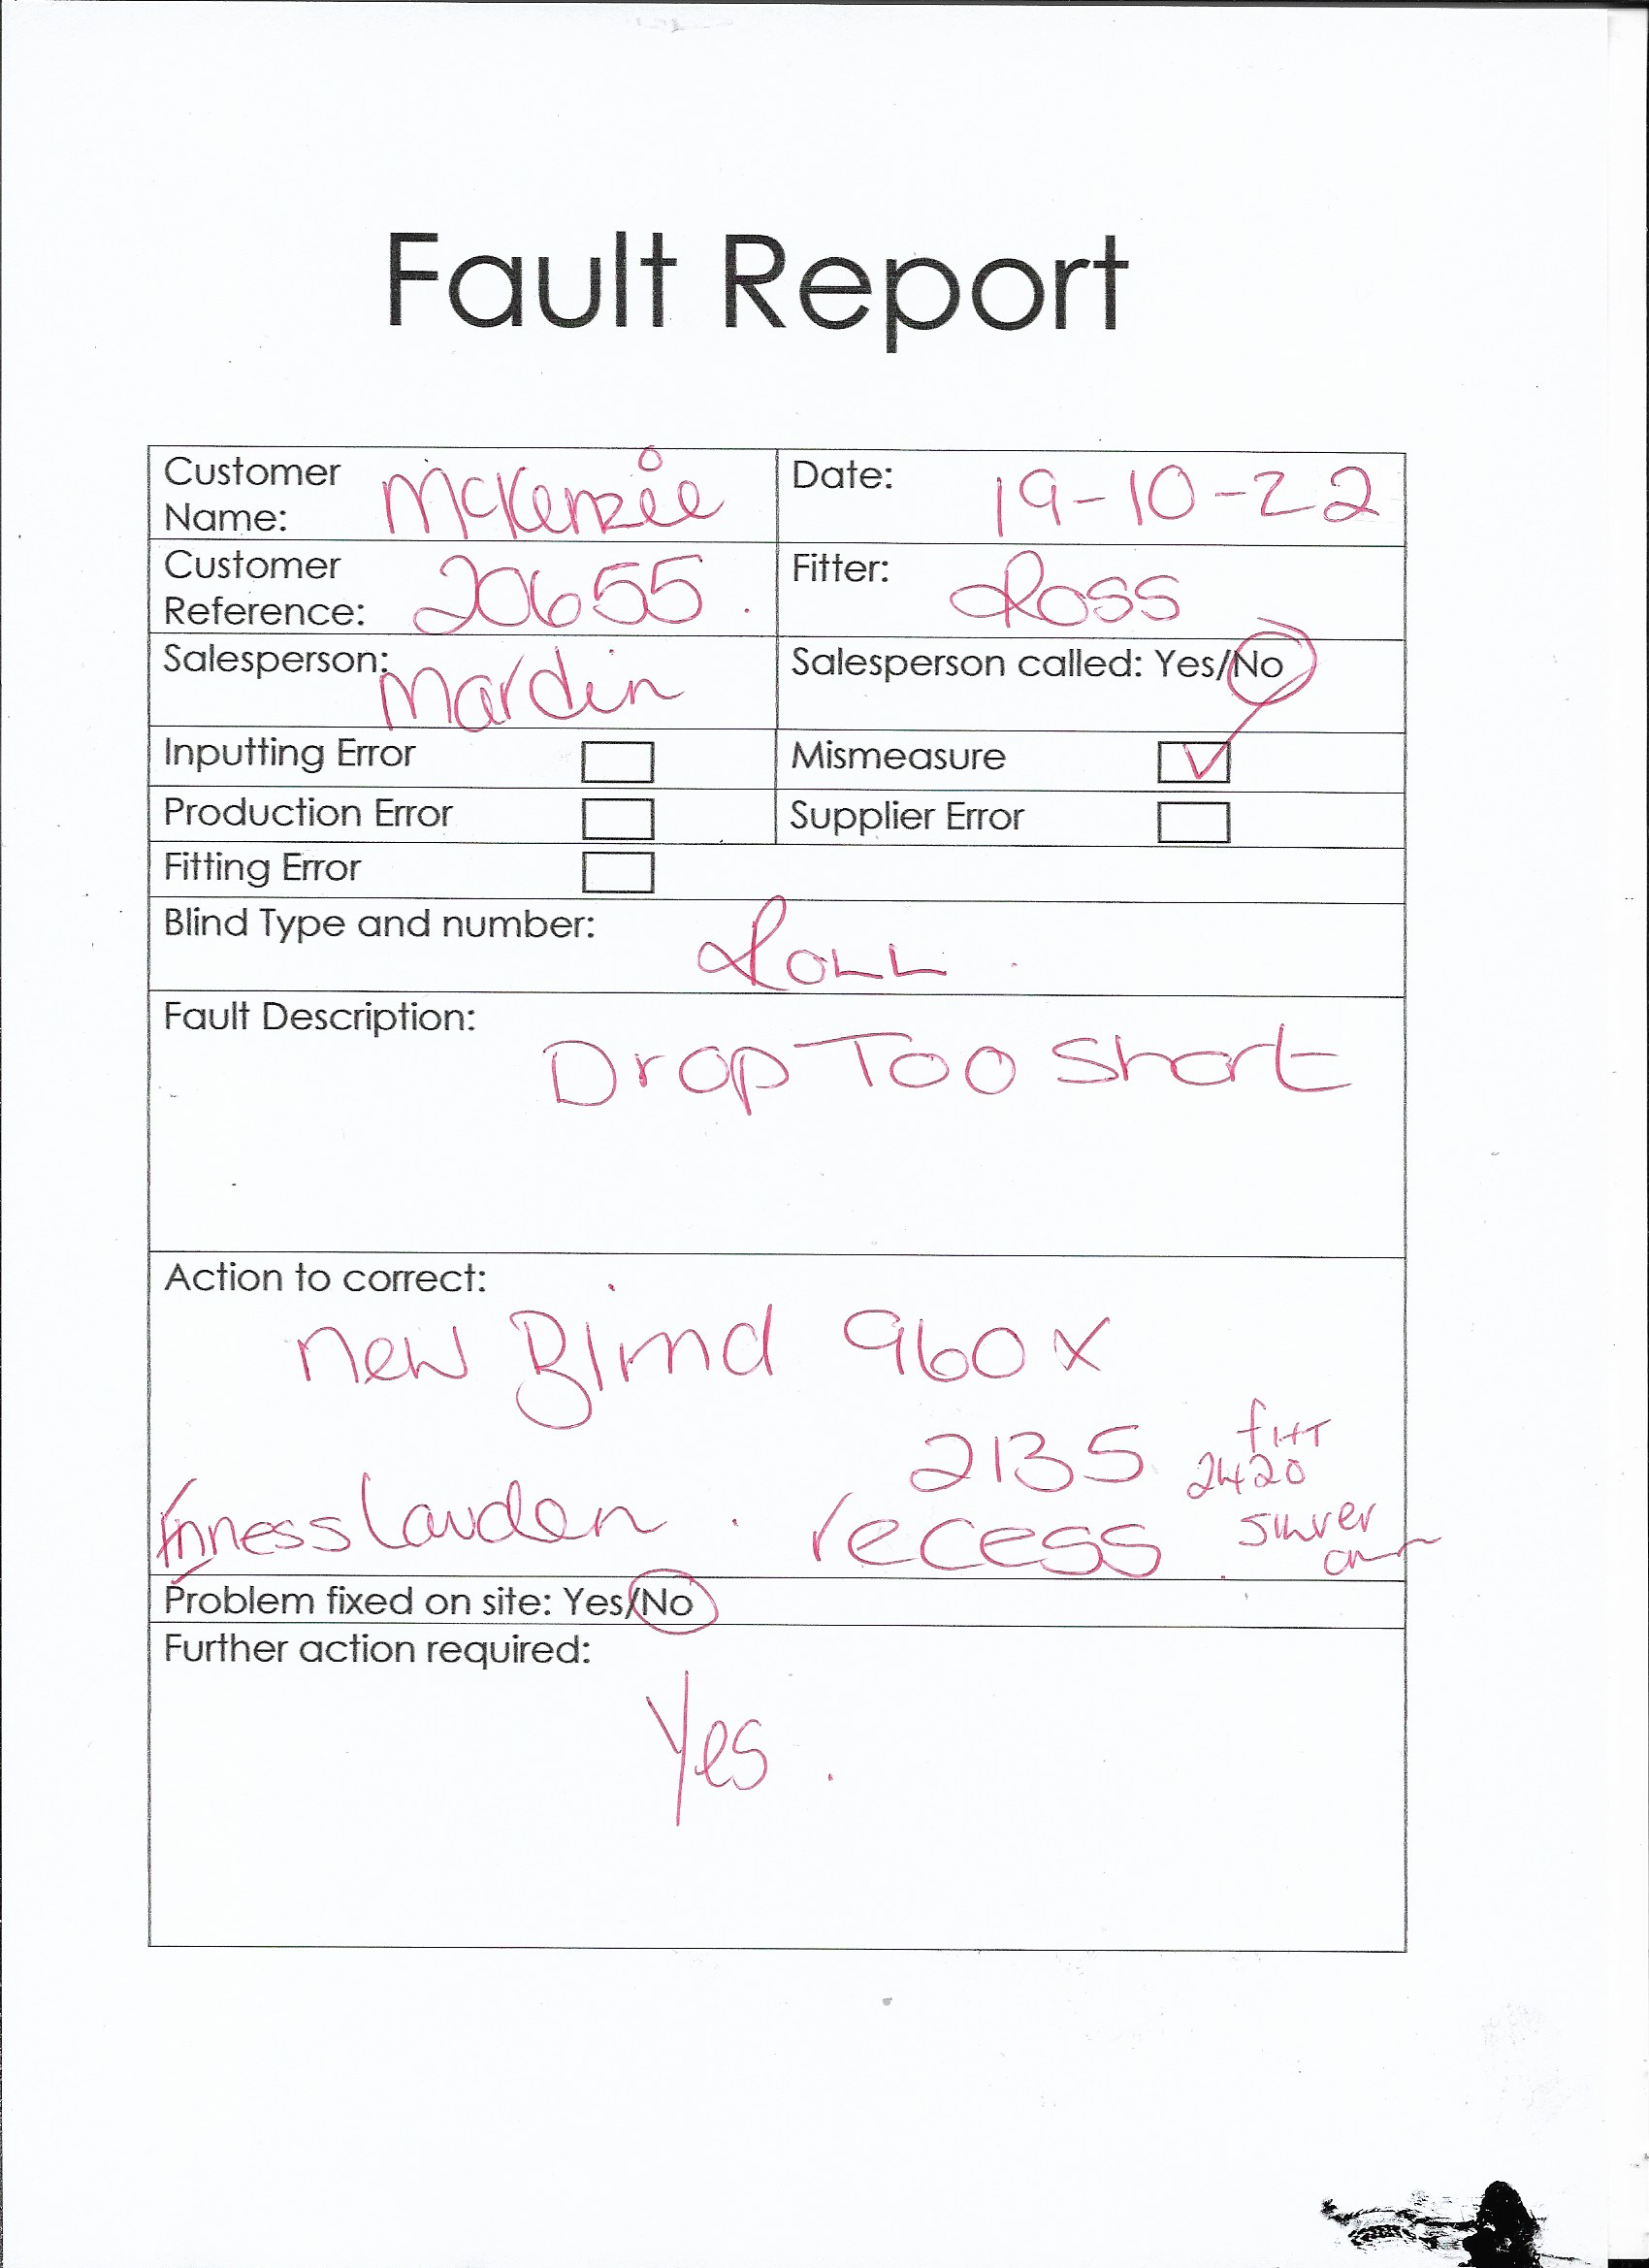 Fault Report
Customer Name: McKenzie
Date: 19-10-22
Customer Reference: 20655.
Fitter: Ross
Salesperson: Mardin
Salesperson called: Yes/No
Inputting Error
Mismeasure ✓
Production Error
Supplier Error
Fitting Error
Blind Type and number: ROLL.
Fault Description:
Drop Too Short
Action to correct:
New Blind 960 x
2135 
2420
recess Silver
Problem fixed on site: Yes/No
Further action required:
Yes.